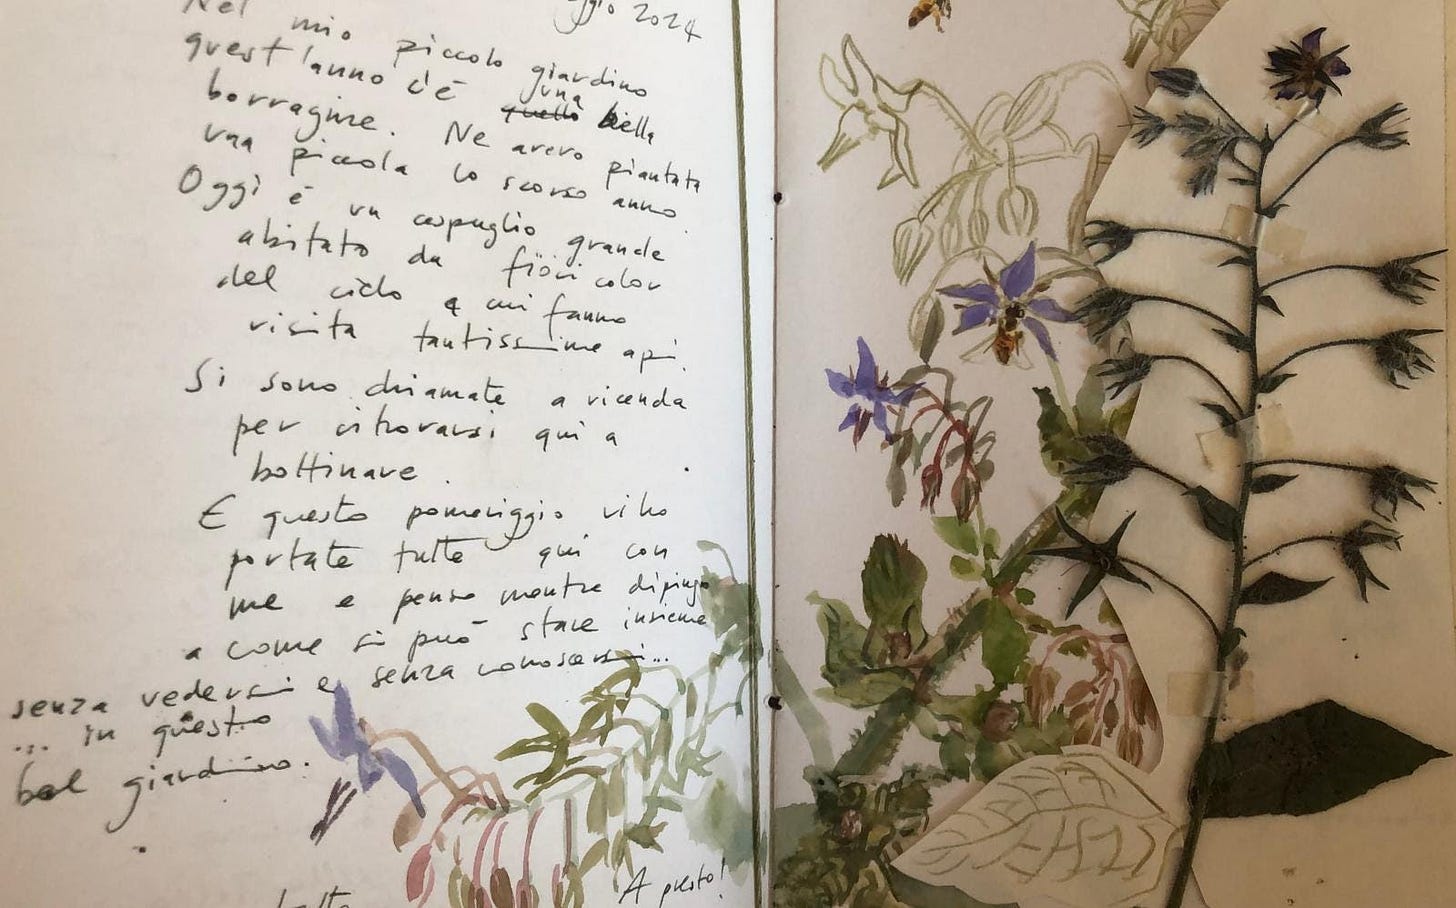 ggio 2024
Nel mio piccolo giardino
quest'anno c'è una bella
borragine. Ne avevo piantata
una piccola lo scorso anno
Oggi è un cespuglio grande
abitato da fiori color
del cielo a cui fanno
visita tantissime api.
Si sono chiamate a vicenda
per ritrovarsi qui a
bottinare.
E questo pomeriggio vi ho
portate tutte qui con
me e penso mentre dipingo
a come si può stare insieme
senza vedersi e senza conoscersi...
... in questo
bel giardino.
A presto!